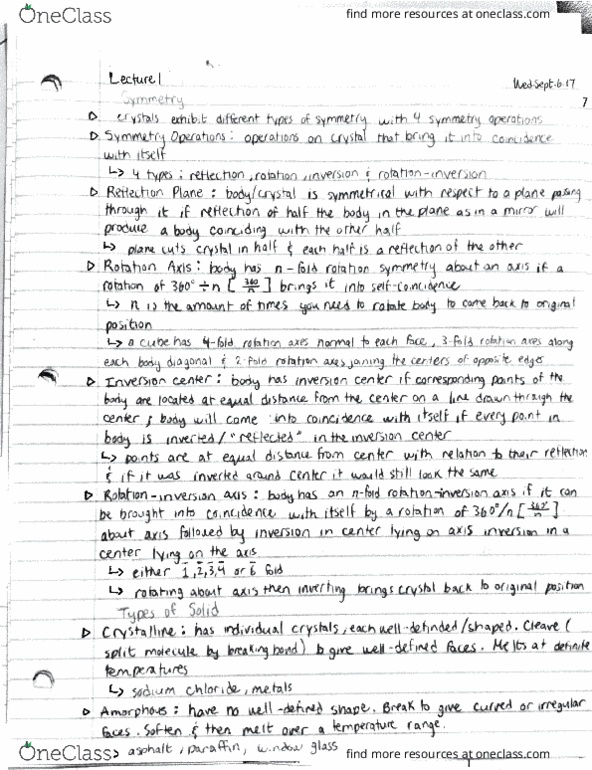 OneClass
find more resources at oneclass.com
Lecture 1
Wed Sept. 6.17
Symmetry
7
crystals exhibit different types of symmetry with 4 symmetry operations
Symmetry Operations : operations on crystal that bring it into coincidence
with itself
↳ 4 types : reflection, rotation, inversion & rotation-inversion
Reflection Plane : body/crystal is symmetrical with respect to a plane passing
through it if reflection of half the body in the plane as in a mirror will
produce a body coinciding with the other half
↳ plane cuts crystal in half & each half is a reflection of the other
Rotation Axis : body has n-fold rotation symmetry about an axis if a
rotation of 360° ÷ n [360/n] brings it into self-coincidence
↳ n is the amount of times you need to rotate body to come back to original
position
↳ a cube has 4-fold rotation axes normal to each face, 3-fold rotation axes along
each body diagonal & 2-fold rotation axes joining the centers of opposite edges
Inversion center : body has inversion center if corresponding points of the
body are located at equal distance from the center on a line drawn through the
center ; body will come into coincidence with itself if every point in
body is inverted / "reflected" in the inversion center
↳ points are at equal distance from center with relation to their reflection
& if it was inverted around center it would still look the same
Rotation-inversion axis : body has an n-fold rotation-inversion axis if it can
be brought into coincidence with itself by a rotation of 360°/n [360°/n]
about axis followed by inversion in center lying on axis inversion in a
center lying on the axis
↳ either 1̄, 2̄, 3̄, 4̄ or 6̄ fold
↳ rotating about axis then inverting brings crystal back to original position
Types of Solid
Crystalline : has individual crystals, each well-definded/shaped. Cleave (
split molecule by breaking bond) to give well-defined faces. Melts at definite
temperatures
↳ sodium chloride, metals
Amorphous : have no well-defined shape. Break to give curved or irregular
faces. Soften & then melt over a temperature range.
asphalt, paraffin, window glass
OneClass
find more resources at oneclass.com